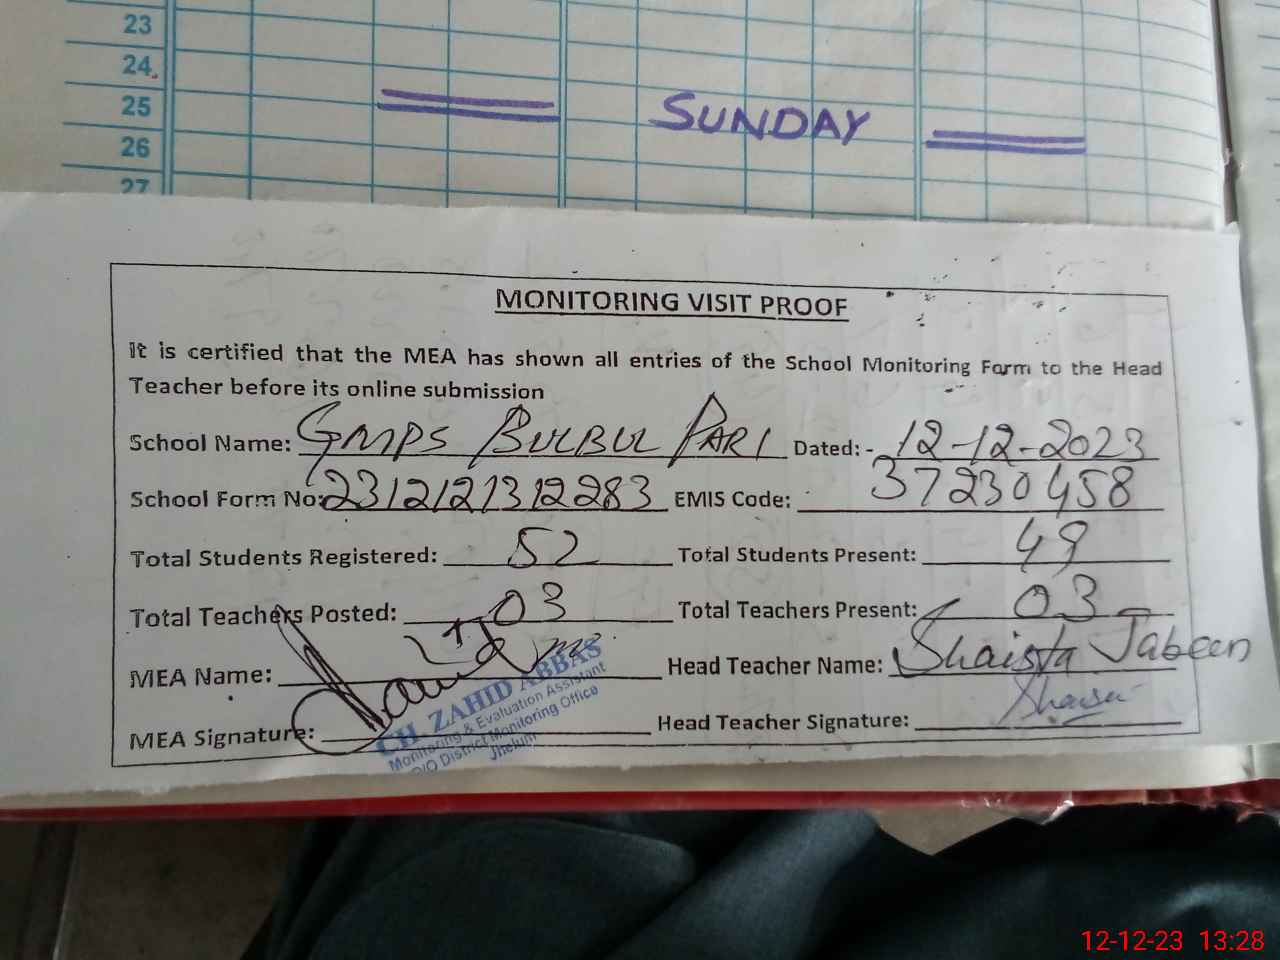 23
24
25
SUNDAY
26
27
MONITORING VISIT PROOF
It is certified that the MEA has shown all entries of the School Monitoring Form to the Head
Teacher before its online submission
School Name: GMPS BULBUL PARI Dated: - 12-12-2023
School Form No: 2312121312283 EMIS Code: 37230458
Total Students Registered: 52 Total Students Present: 49
Total Teachers Posted: 03 Total Teachers Present: 03
MEA Name: Head Teacher Name: Shaista Jabeen
MEA Signature: Head Teacher Signature:
CH. ZAHID ABBAS
Monitoring & Evaluation Assistant
O/O District Monitoring Office
Jhelum
12-12-23 13:28